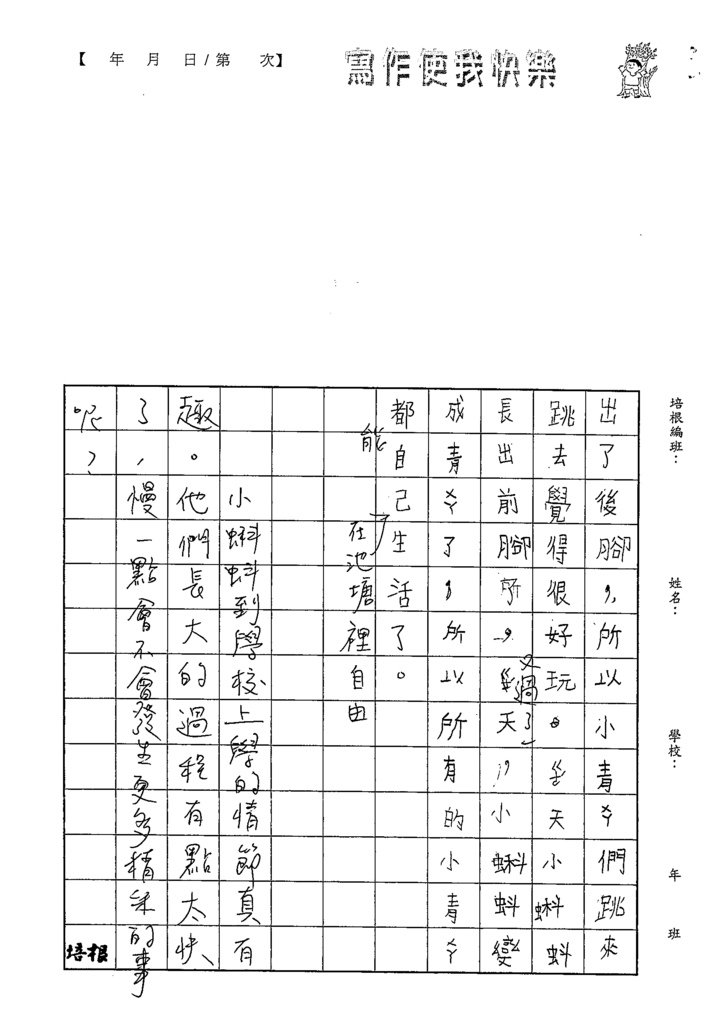 【　年　月　日/第　次】
寫作使我快樂
培根編班：
姓名：
學校：
年
班
出了後腳，所以小青ㄨㄚ們跳來
跳去覺得很好玩。天小蝌蚪
長出前腳，所天，小蝌蚪變
又過了
成青了，所以所有的小青
都自己生活了。
能
在池塘裡自由
小蝌蚪到學校上學的情節真有
趣。他們長大的過程有點太快
了，慢一點會不會發生更多精采的事
呢？
培根